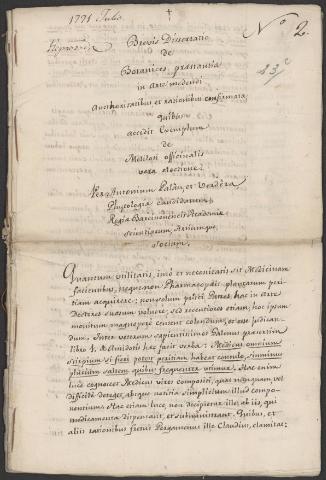 1791 Julio.
Nº 2.
Brevis Dissertatio
de
Botanices præstantia
in Arte medendi
Authoritatibus et rationibus confirmata
quibus
accedit Exemplum
de
Meliloti officinalis
vera notione:
Per Antonium Palàu, et Verdéra
Phycologiæ Candidatum,
Regiæ Barcinonensis Academiæ
scientiarum, Artiumque
socium.
Quantum utilitatis, imò et necessitatis sit Medicinam
facientibus, nequenon Pharmacopolis plantarum peri-
tiam acquirere: non solum prisci Patres hac in Arte
suorum voluere, sed recentiores etiam, hoc ipsum
esse judican-
dum. Inter veteres sapientissimus Galenus praesertim
libro 4. hac facit verba: Medicus omnium
stirpium si fieri potest peritiam habeat consulo, sin minus
plurium saltem quibus frequenter utimur. Hac enim
luce cognoscet Medicus vires compositi, quas nequaquam vel
difficile deteget, absque notitia simplicium illud compo-
nentium. Hac etiam luce, non decipietur ille ab iis, qui
medicamenta dispensant, et subministrant. Quibus, et
aliis rationibus fretus Pergamenus ille Claudius, clamitat: